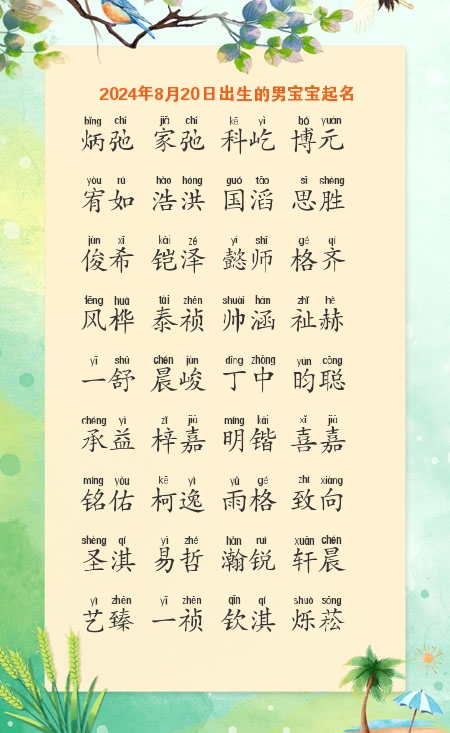 2024年8月20日出生的男宝宝起名
bǐng chí jiā chí kē yì bó yuán
炳弛 家弛 科屹 博元
yòu rú hào hóng guó tāo sī shèng
宥如 浩洪 国滔 思胜
jùn xī kǎi zé yì shī gé qí
俊希 铠泽 懿师 格齐
fēng huà tài zhēn shuài hán zhǐ hè
风桦 泰祯 帅涵 祉赫
yī shū chén jùn dīng zhōng yún cōng
一舒 晨峻 丁中 昀聪
chéng yì zǐ jiā míng kǎi xǐ jiā
承益 梓嘉 明锴 喜嘉
míng yòu kē yì yǔ gé zhì xiàng
铭佑 柯逸 雨格 致向
shèng qí yì zhé hàn ruì xuān chén
圣淇 易哲 瀚锐 轩晨
yì zhēn yī zhēn qīn qí shuò sōng
艺臻 一祯 钦淇 烁菘